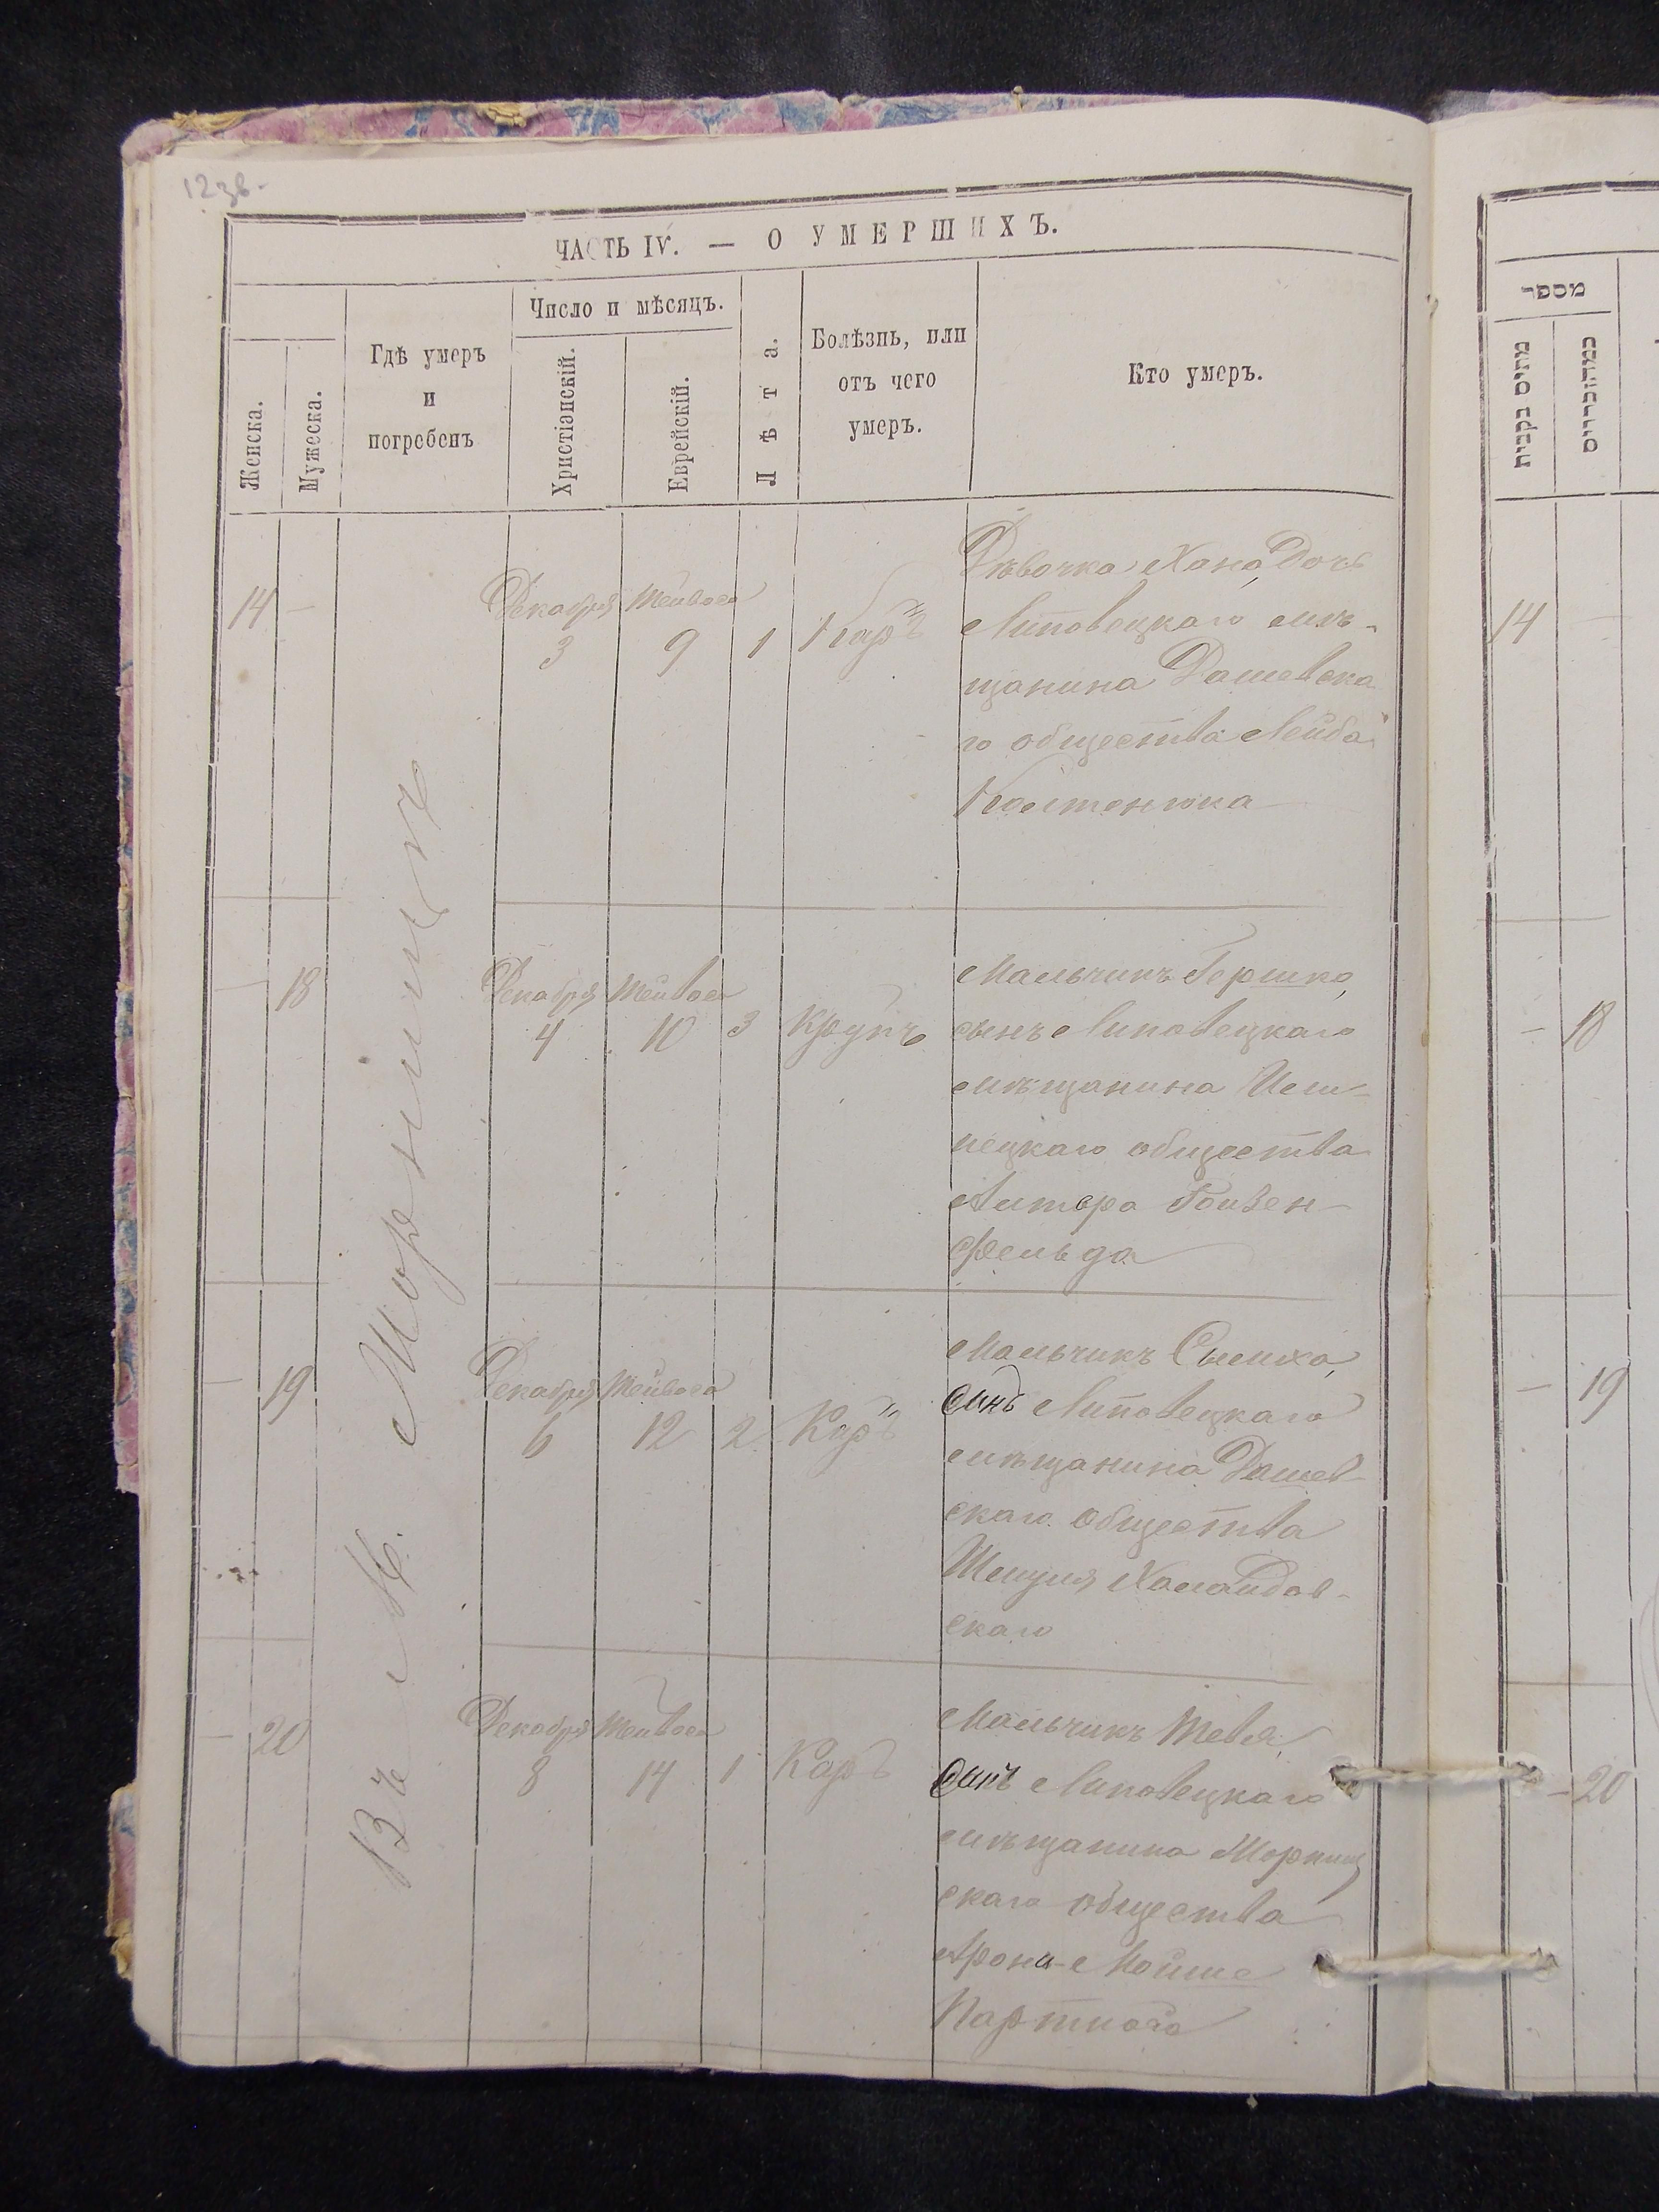 123в.
ЧАСТЬ IV. — О УМЕРШИХЪ.
Женска.
Мужеска.
Гдѣ умеръ
и
погребенъ
Число и мѣсяцъ.
Христіанскій.
Еврейскій.
Лѣта.
Болѣзнь, или
отъ чего
умеръ.
Кто умеръ.
Въ М. Моринцѣ
14 —
Декабря Тейвеса
3 9 1 Корь
Дѣвочка Хана, дочь
Липовецкаго мѣ-
щанина Дашевска
го общества Лейба
— 18
Декабря Тейвеса
4 10 3 Крупъ
Мальчикъ Гершко,
сынъ Липовецкаго
мѣщанина Иль-
нецкаго общества
Алтера
фельда
— 19
Декабря Тейвеса
6 12 2 Корь
Мальчикъ Сымха,
сынъ Липовецкаго
мѣщанина Дашев-
скаго общества
Шмуля
скаго
— 20
Декабря Тейвеса
8 14 1 Корь
Мальчикъ Тевья,
сынъ Липовецкаго
мѣщанина
скаго общества
Арона-Мойше
Портного
מספר
מתים נקבות
כמהזכרים
14 —
— 18
— 19
— 20